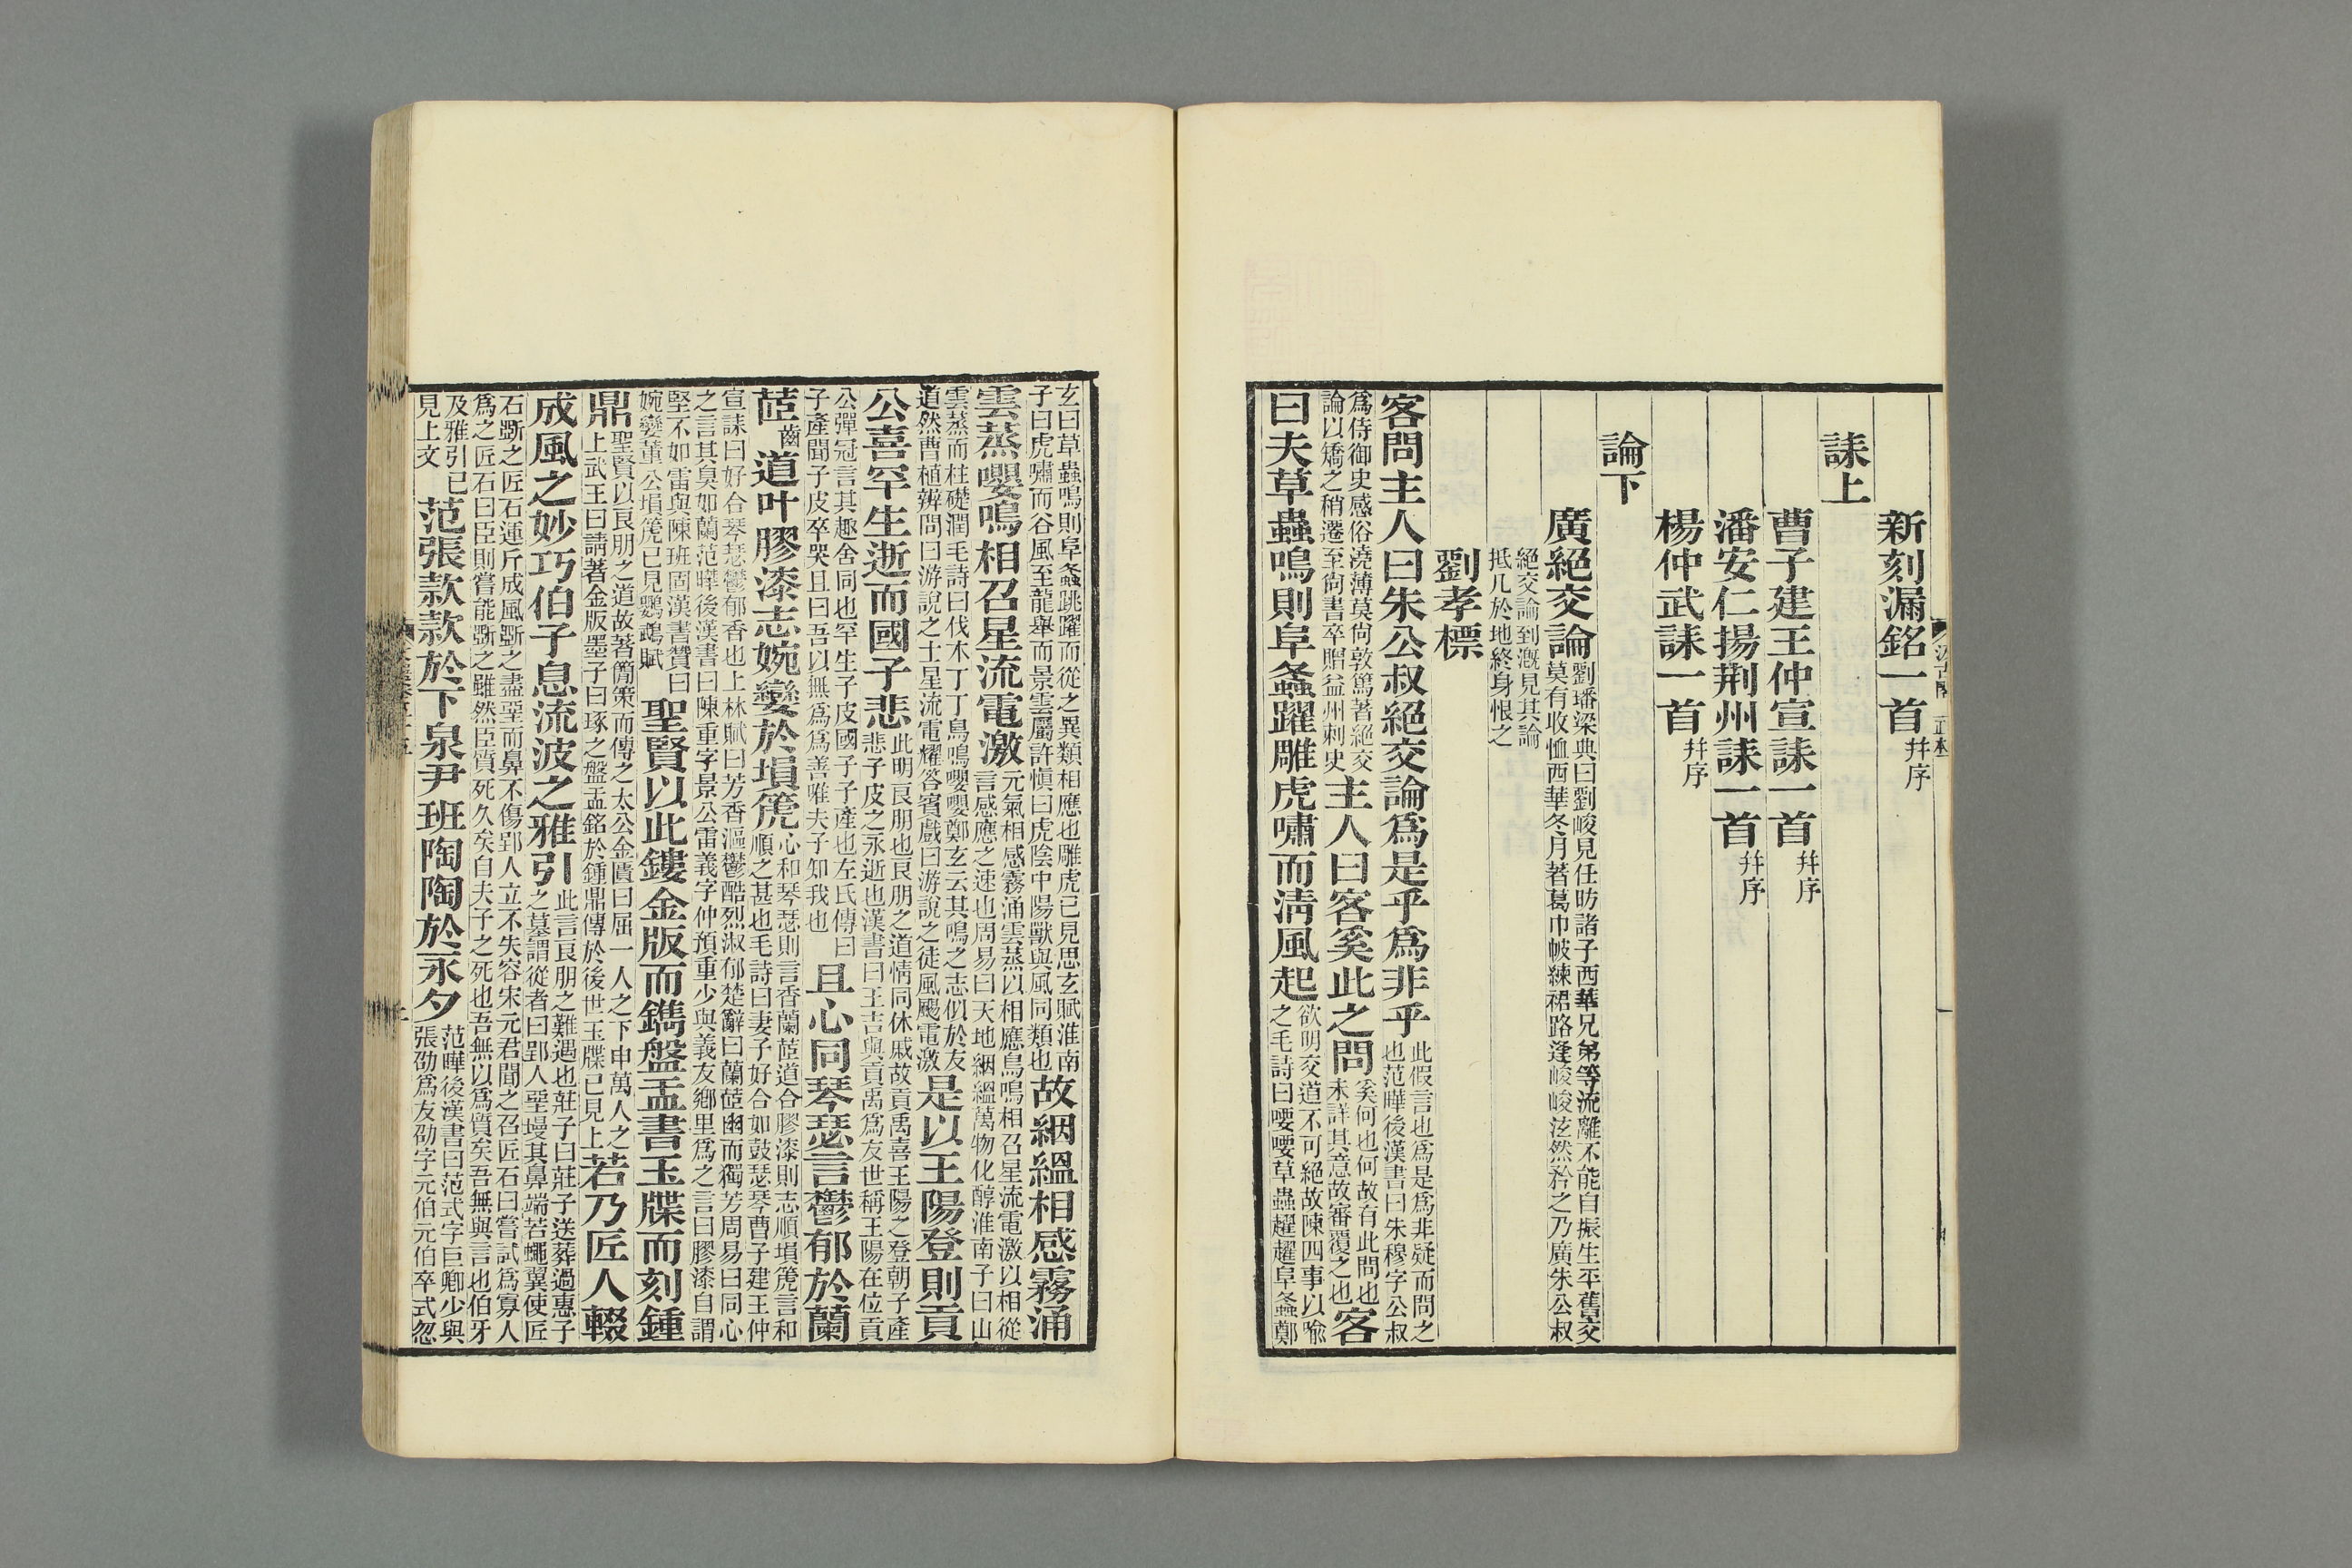 汲古閣
正本
新刻漏銘一首幷序
誄上
曹子建王仲宣誄一首幷序
潘安仁揚荆州誄一首幷序
楊仲武誄一首幷序
論下
廣絕交論劉璠梁典曰劉峻見任昉諸子西華兄弟等流離不能自振生平舊交莫有收恤西華冬月著葛巾帔練裙路逢峻峻泫然矜之乃廣朱公叔
絕交論到溉見其論抵几於地終身恨之
劉孝標
客問主人曰朱公叔絕交論爲是乎爲非乎此假言也爲是爲非疑而問之也范曄後漢書曰朱穆字公叔
爲侍御史感俗澆薄莫尙敦篤著絕交論以矯之稍遷至尙書卒贈益州刺史主人曰客奚此之問奚何也何故有此問也未詳其意故審覆之也客
曰夫草蟲鳴則阜螽躍雕虎嘯而淸風起欲明交道不可絕故陳四事以喻之毛詩曰喓喓草蟲趯趯阜螽鄭
玄曰草蟲鳴則阜螽跳躍而從之異類相應也雕虎已見思玄賦淮南子曰虎嘯而谷風至龍舉而景雲屬許愼曰虎陰中陽獸與風同類也故絪縕相感霧涌
雲蒸嚶鳴相召星流電激元氣相感霧涌雲蒸以相應鳥鳴相召星流電激以相從言感應之速也周易曰天地絪縕萬物化醇淮南子曰山
雲蒸而柱礎潤毛詩曰伐木丁丁鳥鳴嚶嚶鄭玄云其鳴之志似於友道然曹植辨問曰游說之士星流電耀荅賓戲曰游說之徒風颺電激是以王陽登則貢
公喜罕生逝而國子悲此明良朋也良朋之道情同休戚故貢禹喜王陽之登朝子產悲子皮之永逝也漢書曰王吉與貢禹爲友世稱王陽在位貢
公彈冠言其趣舍同也罕生子皮國子子產也左氏傳曰子產聞子皮卒哭且曰吾以無爲爲善唯夫子知我也且心同琴瑟言鬱郁於蘭
茝齒道叶膠漆志婉孌於塤箎心和琴瑟則言香蘭茝道合膠漆則志順塤箎言和順之甚也毛詩曰妻子好合如鼓瑟琴曹子建王仲
宣誄曰好合琴瑟鬱郁香也上林賦曰芳香漚鬱酷烈淑郁楚辭曰蘭茝幽而獨芳周易曰同心之言其臭如蘭范曄後漢書曰陳重字景公雷義字仲預重少與義友鄉里爲之言曰膠漆自謂
堅不如雷與陳班固漢書贊曰婉孌董公塤箎已見鸚鵡賦聖賢以此鏤金版而鐫盤盂書玉牒而刻鍾
鼎聖賢以良朋之道故著簡策而傳之太公金匱曰屈一人之下申萬人之上武王曰請著金版墨子曰琢之盤盂銘於鍾鼎傳於後世玉牒已見上若乃匠人輟
成風之妙巧伯子息流波之雅引此言良朋之難遇也莊子曰莊子送葬過惠子之墓謂從者曰郢人堊墁其鼻端若蠅翼使匠
石斲之匠石運斤成風斲之盡堊而鼻不傷郢人立不失容宋元君聞之召匠石曰嘗試爲寡人爲之匠石曰臣則嘗能斲之雖然臣質死久矣自夫子之死也吾無以爲質矣吾無與言也伯牙
及雅引已見上文范張款款於下泉尹班陶陶於永夕范曄後漢書曰范式字巨卿少與張劭爲友劭字元伯元伯卒式忽